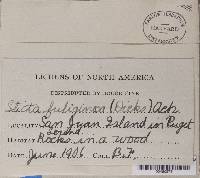 LICHENS OF NORTH AMERICA
DISTRIBUTED BY BRUCE FINK
Sticta fuliginosa (Dicks) Ach
LOCALITY, San Juan Island in Puget
Sound
HABITAT, Rocks in a wood
DATE, June 1906 COLL. B. F.